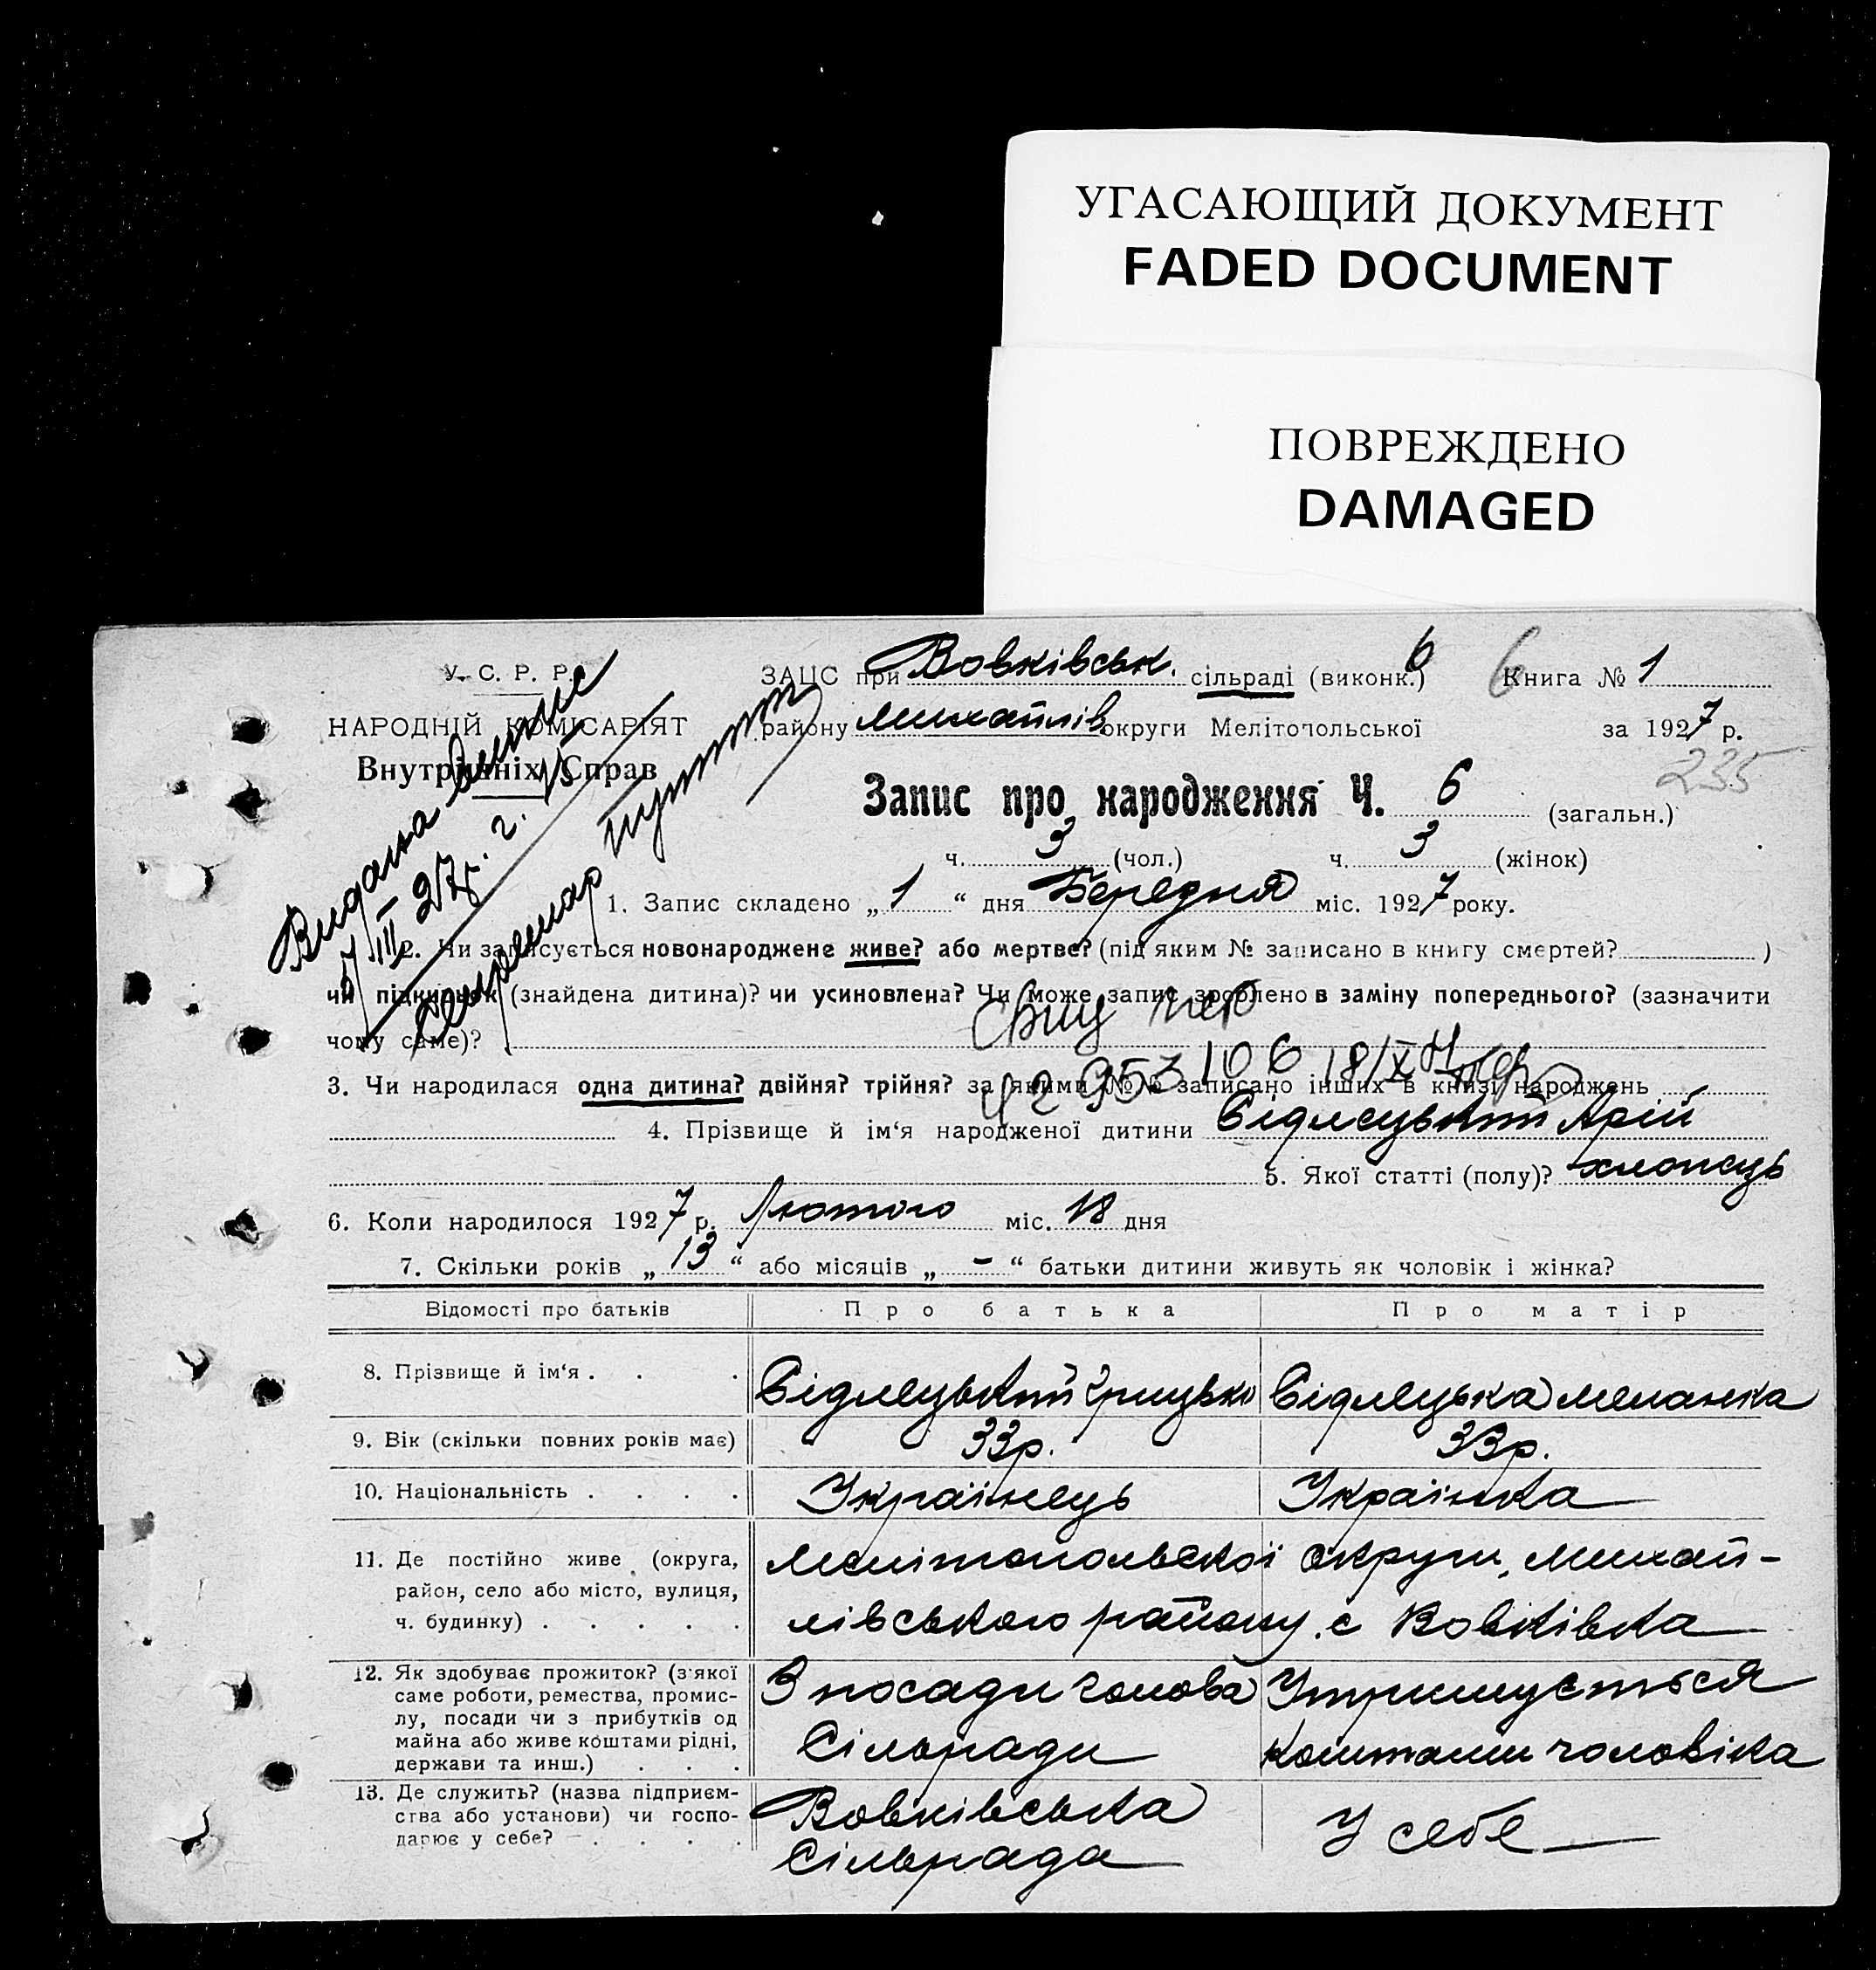 УГАСАЮЩИЙ ДОКУМЕНТ
FADED DOCUMENT
ПОВРЕЖДЕНО
DAMAGED
У. С. Р. Р.
НАРОДНІЙ КОМІСАРІЯТ
Внутрішніх Справ
ЗАЦС при Вовківськ. сільраді (виконк.) 6 6 Книга № 1
району Михайлів округи Мелітопольської за 1927 р.
235
Запис про народження Ч. 6 (загальн.)
ч. 3 (чол.) ч. 3 (жінок)
Видана виписка
7/III 27р. г.
Секретар
1. Запис складено „1“ дня Березня міс. 1927 року.
2. Чи записується новонароджене живе? або мертве? (під яким № записано в книгу смертей? )
чи підкидьок (знайдена дитина)? чи усиновлена? Чи може запис зроблено в заміну попереднього? (зазначити
чому саме)?
953106 18/X
3. Чи народилася одна дитина? двійня? трійня? за якими №№ записано інших в книзі народжень
4. Прізвище й ім‘я народженої дитини Сідлецький Арій
5. Якої статті (полу)? хлопець
6. Коли народилося 1927 р. Лютого міс. 18 дня
7. Скільки років „13“ або місяців „-“ батьки дитини живуть як чоловік і жінка?
Відомості про батьків Про батька Про матір
8. Прізвище й ім‘я . . . Сідлецький Грицько Сідлецька Меланка
9. Вік (скільки повних років має) 33р. 33р.
10. Національність . . . . Українець Українка
11. Де постійно живе (округа,
район, село або місто, вулиця,
ч. будинку) . . . . .
Мелітопольської округи, Михай-
лівського району, с Вовківка
12. Як здобуває прожиток? (з якої
саме роботи, ремества, промис-
лу, посади чи з прибутків од
майна або живе коштами рідні,
держави та инш.) . . .
З посади голова
Сільради
Утримується
коштами чоловіка
13. Де служить? (назва підприєм-
ства або установи) чи госпо-
дарює у себе? — . . . .
Вовківська
Сільрада
У себе